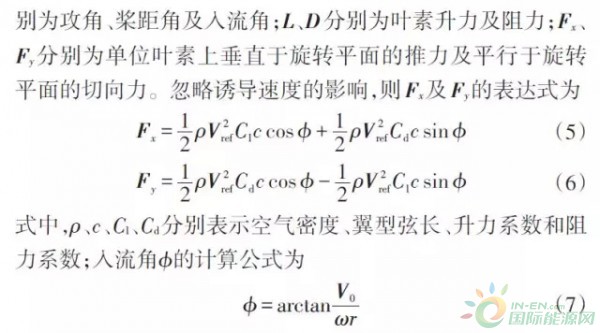 别为攻角、桨距角及入流角;L、D分别为叶素升力及阻力;Fₓ、
Fᵧ分别为单位叶素上垂直于旋转平面的推力及平行于旋转
平面的切向力。忽略诱导速度的影响,则Fₓ及Fᵧ的表达式为
Fₓ=\frac{1}{2}ρV²_{ref}C_l c cosϕ+\frac{1}{2}ρV²_{ref}C_d c sinϕ (5)
Fᵧ=\frac{1}{2}ρV²_{ref}C_d c cosϕ−\frac{1}{2}ρV²_{ref}C_l c sinϕ (6)
式中,ρ、c、C_l、C_d分别表示空气密度、翼型弦长、升力系数和阻
力系数;入流角ϕ的计算公式为
ϕ=arctan\frac{V_0}{ωr} (7)
IN-EN.com
国际能源网